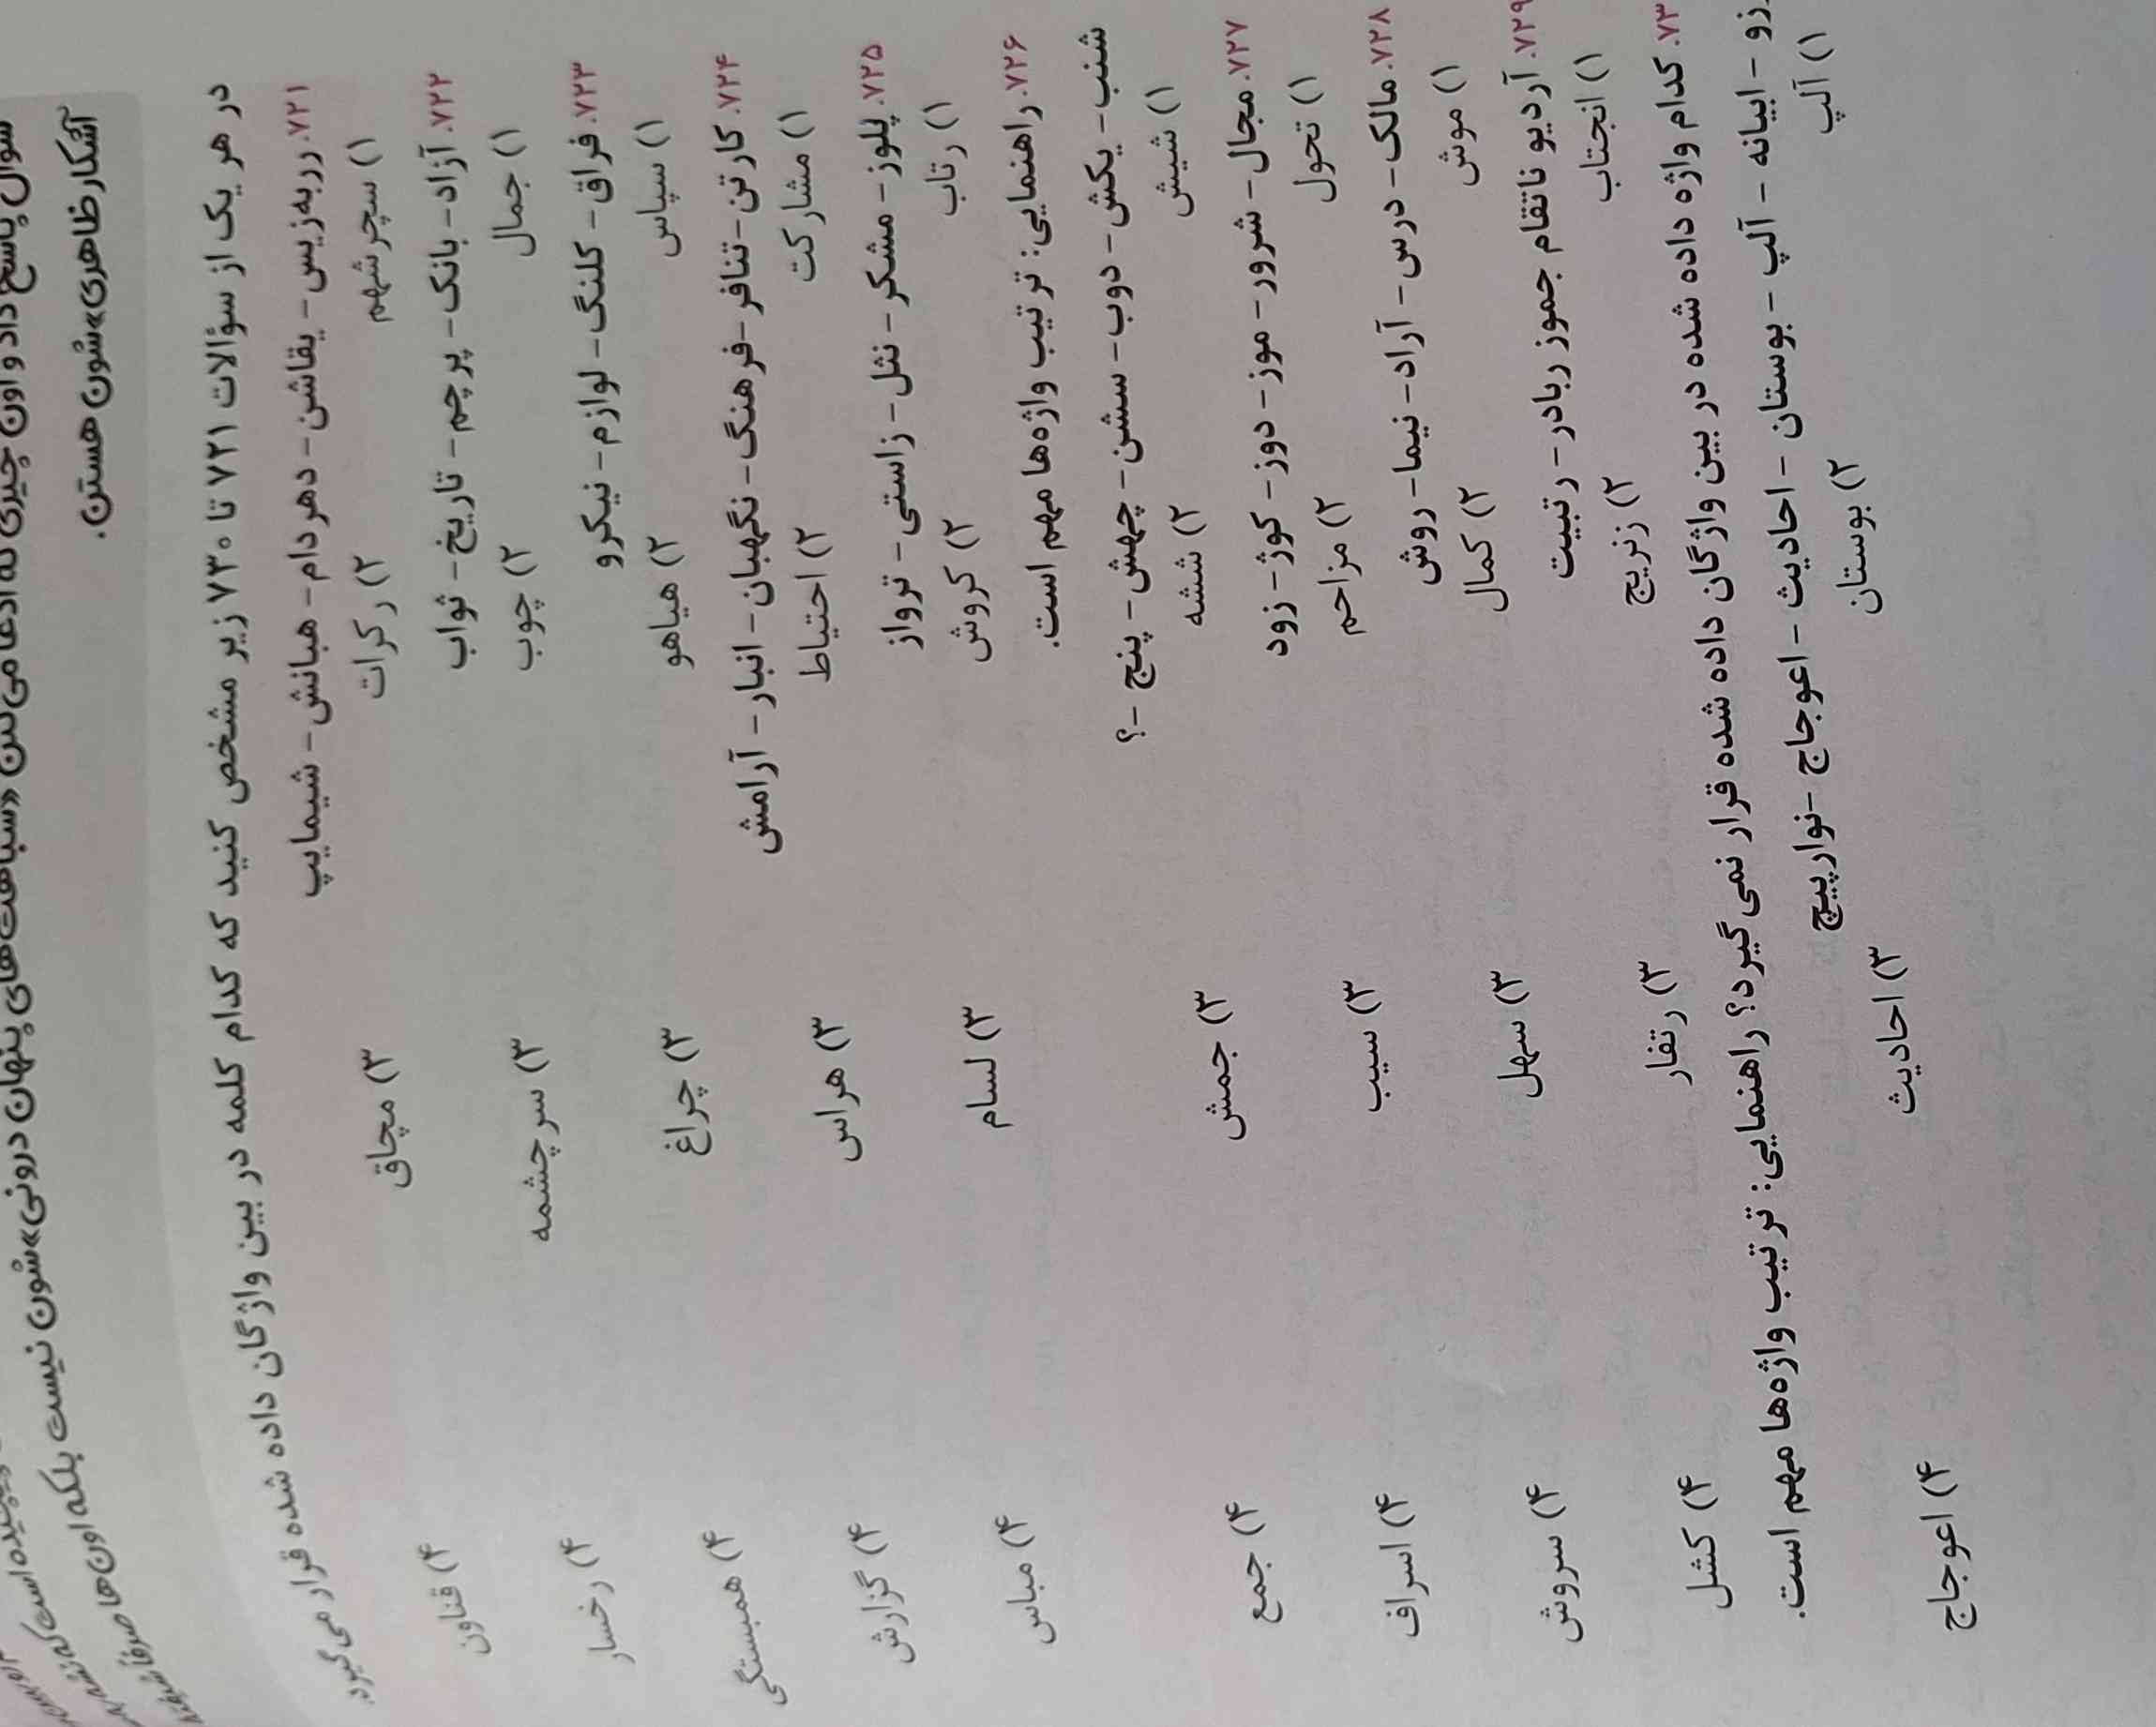 آشکار ظاهری» شون هستن.
در هر یک از سؤالات ۷۲۱ تا ۷۳۰ زیر مشخص کنید که کدام کلمه در بین واژگان داده شده قرار می‌گیرد.
۷۲۱. رربه‌زیس - یقاشن - دهردام - هبانش - شیمایپ
۱) سچرشهم ۲) رکرات ۳) مچاق ۴) قناون
۷۲۲. آزاد - بانک - پرچم - تاریخ - ثواب
۱) جمال ۲) چوب ۳) سرچشمه ۴) رخسار
۷۲۳. فراق - کلنگ - لوازم - نیکرو
۱) سپاس ۲) هیاهو ۳) چراغ ۴) همبستگی
۷۲۴. کارتن - تنافر - فرهنگ - نگهبان - انبار - آرامش
۱) مشارکت ۲) احتیاط ۳) هراس ۴) گزارش
۷۲۵. پلوز - مشکر - نثل - زاستی - ترواز
۱) رتاب ۲) کروش ۳) لسام ۴) مباس
۷۲۶. راهنمایی: ترتیب واژه‌ها مهم است.
شنب - یکش - دوب - سشن - چهش - پنج - ؟
۱) شیش ۲) ششه ۳) جمش ۴) جمع
۷۲۷. مجال - شرور - موز - دوز - کوژ - زود
۱) تحول ۲) مزاحم ۳) سیب ۴) اسراف
۷۲۸. مالک - درس - آراد - نیما - روش
۱) موش ۲) کمال ۳) سهل ۴) سروش
۷۲۹. آردیو ناتقام جموز ربادر - رتبیت
۱) انجتاب ۲) زنریج ۳) رتفار ۴) کشل
۷۳. کدام واژه داده شده در بین واژگان داده شده قرار نمی‌گیرد؟ راهنمایی: ترتیب واژه‌ها مهم است.
زو - ابیانه - آلپ - بوستان - احادیث - اعوجاج - نوارپیچ
۱) آلپ ۲) بوستان ۳) احادیث ۴) اعوجاج